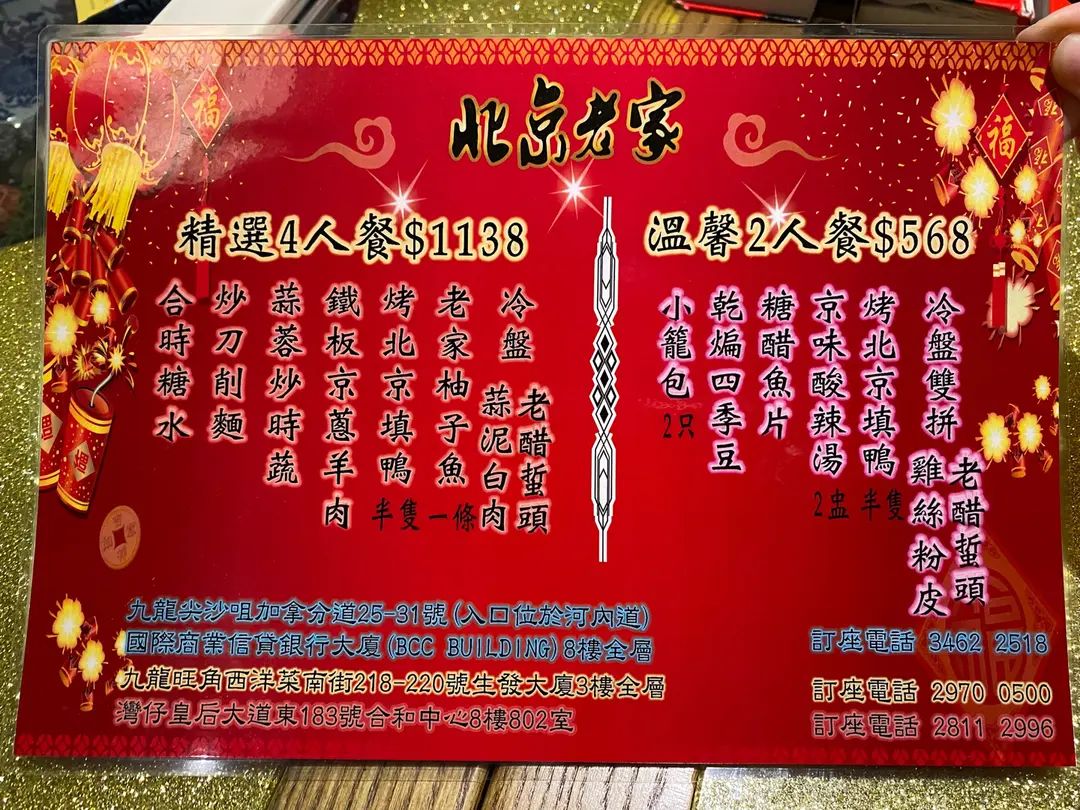 北京老家
精選4人餐$1138
冷盤
老醋蜇頭
蒜泥白肉
老家柚子魚 一條
烤北京填鴨 半隻
鐵板京蔥羊肉
蒜蓉炒時蔬
炒刀削麵
合時糖水
溫馨2人餐$568
冷盤雙拼
老醋蜇頭
雞絲粉皮
烤北京填鴨 半隻
京味酸辣湯 2盅
糖醋魚片
乾煸四季豆
小籠包 2只
九龍尖沙咀加拿分道25-31號(入口位於河內道)
國際商業信貸銀行大廈(BCC BUILDING)8樓全層
訂座電話 3462 2518
九龍旺角西洋菜南街218-220號生發大廈3樓全層
訂座電話 2970 0500
灣仔皇后大道東183號合和中心8樓802室
訂座電話 2811 2996
福
福